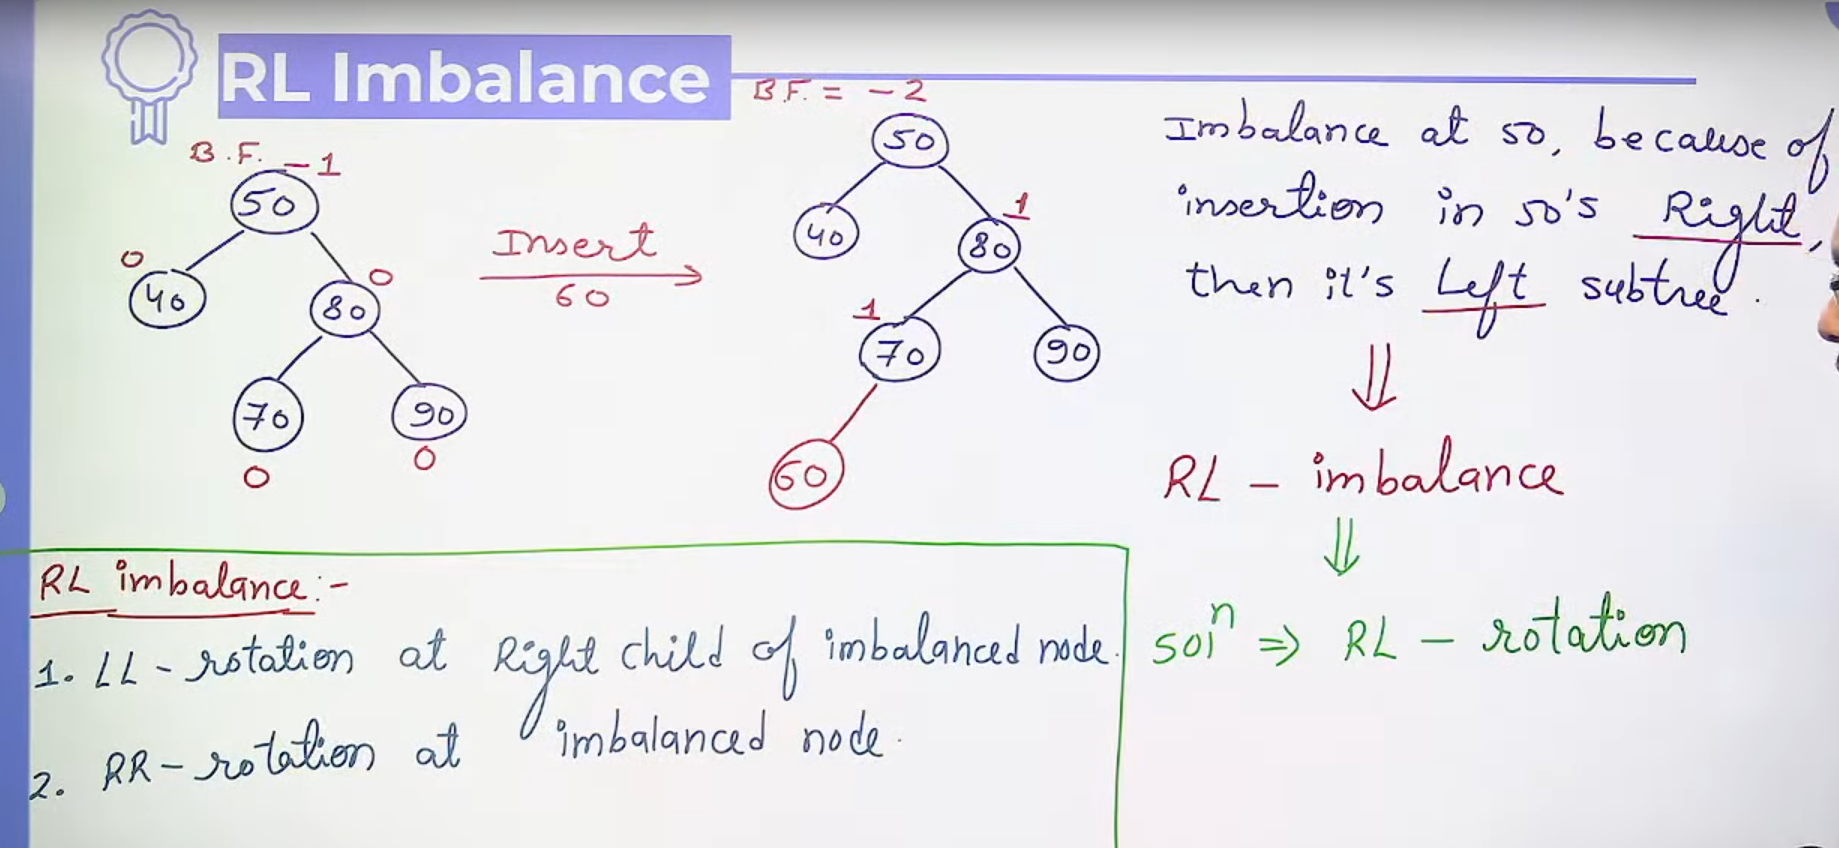 RL Imbalance
B.F. -1
50
0
40
0
80
70
90
0
0
Insert
60
B.F. = -2
50
40
1
80
1
70
90
60
Imbalance at 50, because of
insertion in 50's Right,
then it's Left subtree.
⇓
RL - imbalance
⇓
solⁿ ⇒ RL - rotation
RL imbalance:-
1. LL - rotation at Right child of imbalanced node.
2. RR - rotation at imbalanced node.